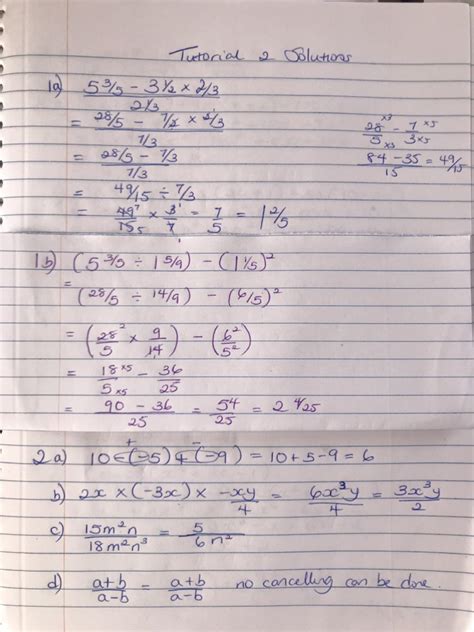 Tutorial 2 Solutions
1a) 5 3/5 - 3 1/2 × 2/3
2 1/3
= 28/5 - 7/2 × 2/3
7/3
= 28/5 - 7/3
7/3
= 49/15 ÷ 7/3
= 49 7/15 5 × 3 1/7 = 7/5 = 1 2/5
28 ×3/5 ×3 - 7 ×5/3 ×5
84 - 35/15 = 49/15
1b) (5 3/5 ÷ 1 5/9) - (1 1/5)²
= (28/5 ÷ 14/9) - (6/5)²
= (28 2/5 × 9/14 1) - (6²/5²)
= 18 ×5/5 ×5 - 36/25
= 90 - 36/25 = 54/25 = 2 4/25
2a) 10 - (-5) + (-9) = 10 + 5 - 9 = 6
b) 2x × (-3x) × -xy/4 = 6x³y/4 = 3x³y/2
c) 15m²n/18m²n³ = 5/6n²
d) a+b/a-b = a+b/a-b no cancelling can be done.